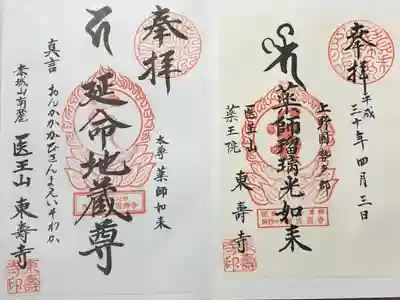 奉拝
本尊 薬師如来
延命地蔵尊
真言 おんかかかびさんまえいそわか
赤城山南麓
医王山 東壽寺
奉拝
平成三十年四月三日
上野國勢多郡
薬師瑠璃光如来
医王山 東壽寺
薬王院
東壽寺印
東壽寺印